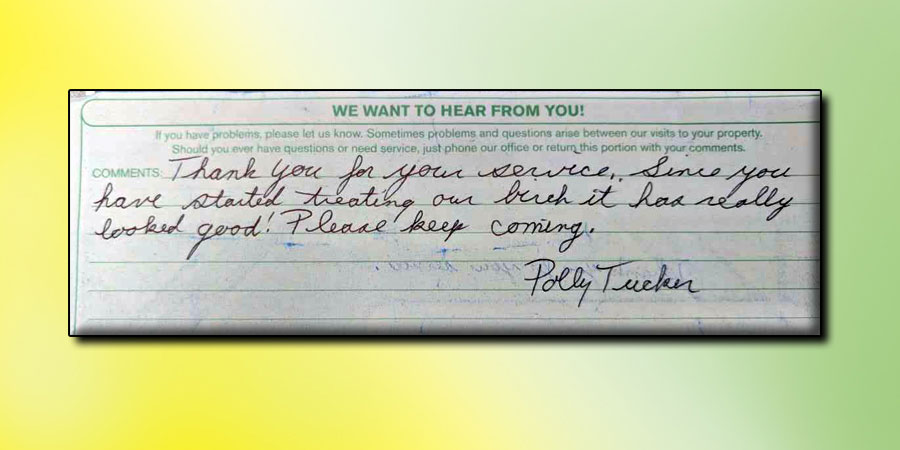 WE WANT TO HEAR FROM YOU!
If you have problems, please let us know. Sometimes problems and questions arise between our visits to your property.
Should you ever have questions or need service, just phone our office or return this portion with your comments.
COMMENTS: Thank you for your service. Since you
have started treating our birch it has really
looked good! Please keep coming.
Polly Tucker